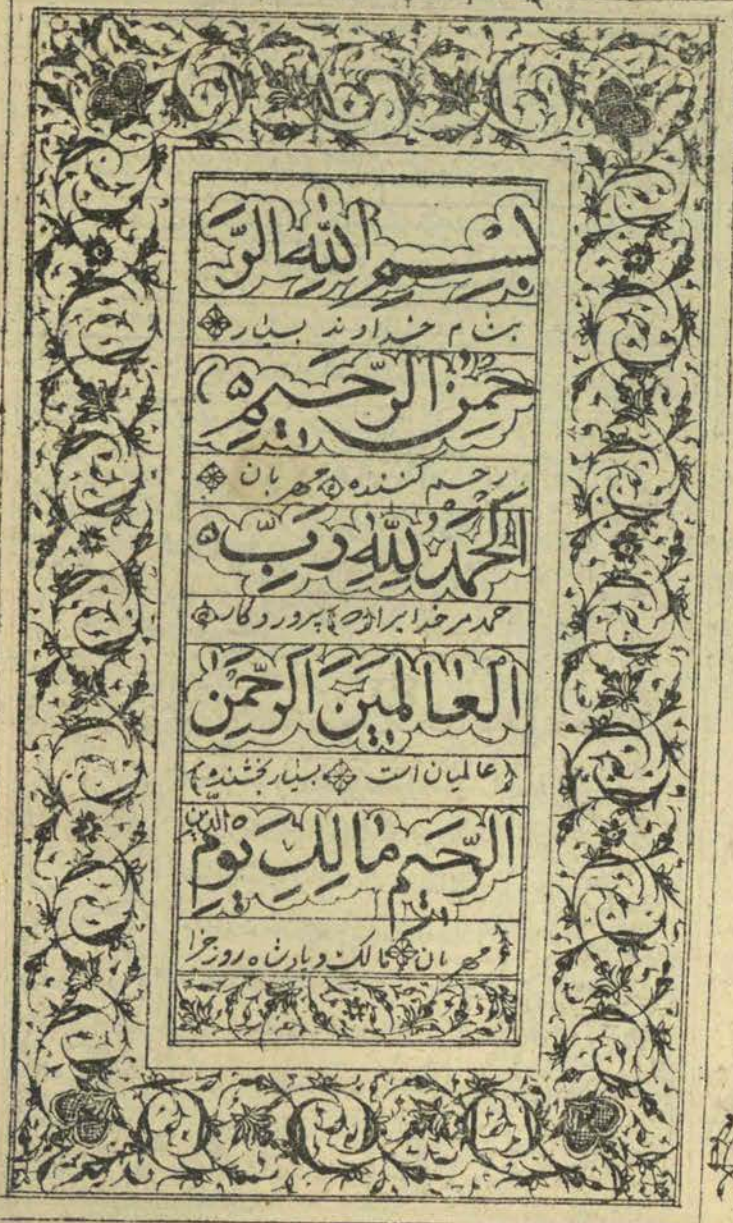 بِسْمِ اللهِ الرَّ
بنام خداوند بسیار
حْمٰنِ الرَّحیمِ
رحم کننده مهربان
اَلْحَمْدُ لِلّٰهِ رَبِّ
حمد مر خدا برا پروردگار
الْعٰالَمینَ اَلرَّحْمٰنِ
عالمیان است بسیار بخشنده
الرَّحیمِ مٰالِكِ یَوْمِ الدّینِ
مهربان مالک و پادشاه روز جزا